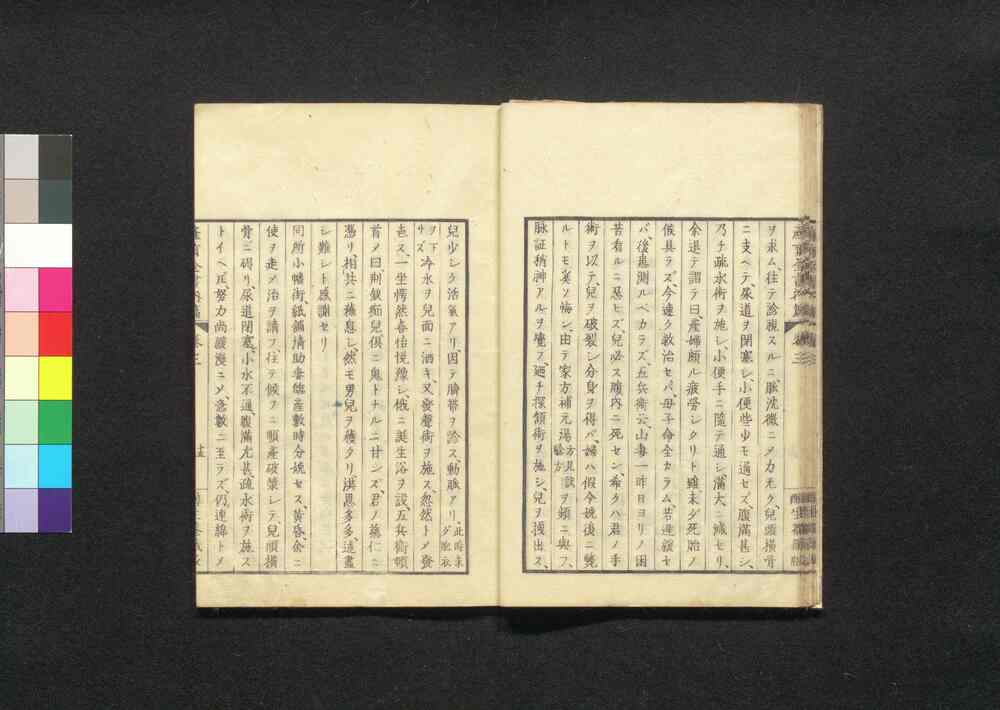 ヲ求ム、往テ診視スルニ、脈沈微ニメ力无ク、兒頭横骨
ニ支ヘテ、尿道ヲ閉塞シ、小便些少モ通セズ、腹滿甚シ、
乃チ疏水術ヲ施シ、小便手ニ隨テ通シ、滿大ニ減セリ、
余退テ謂テ曰、産婦頗ル疲勞シクリト雖、未ダ死胎ノ
候具ラズ、今速ク救治セバ、母子命全カラム、若遲緩セ
バ後患測ルベカラズ、五兵衛云、山妻一昨日ヨリノ困
苦看ルニ忍ビズ、兒必ス腹内ニ死セン、希クハ君ノ手
術ヲ以テ、兒ヲ破裂シ、分身ヲ得バ、婦ハ假令娩後ニ斃
ルトモ奚ソ悔ン、由テ家方補元湯方見設驗方ヲ頻ニ與フ、
脉証稍神アルヲ覺フ、廼チ探頷術ヲ施シ、兒ヲ拽出ス、
兒少シク活氣アリ、因テ臍帶ヲ診ス、動脉アリ、此時未ダ胞衣
ヲ下サズ冷水ヲ兒面ニ洒キ、又發聲術ヲ施ス、忽然トメ發
㐌ス、一坐愕然、喜怡悦豫シ、俄ニ誕生浴ヲ設、五兵衛頓
首メ曰、荊釵痴兒俱ニ鬼トナルニ甘シズ、君ノ藥仁ニ
憑リ、相共ニ穌息シ、然モ男兒ヲ穫タリ、洪恩多多、遠盡
シ難シト感謝セリ
同所小幡街、紙鋪場助妻、臨産數時分娩セス、黄昏余ニ
使ヲ走メ治ヲ請フ、往テ候フニ、順産破漿シテ兒頭横
骨ニ碍リ、尿道閉塞、小水不通、腹滿尤甚、疏水術ヲ施ス
トイヘ𪜈、努力尚緩漫ニメ、急數ニ至ラズ、仍連綿トメ